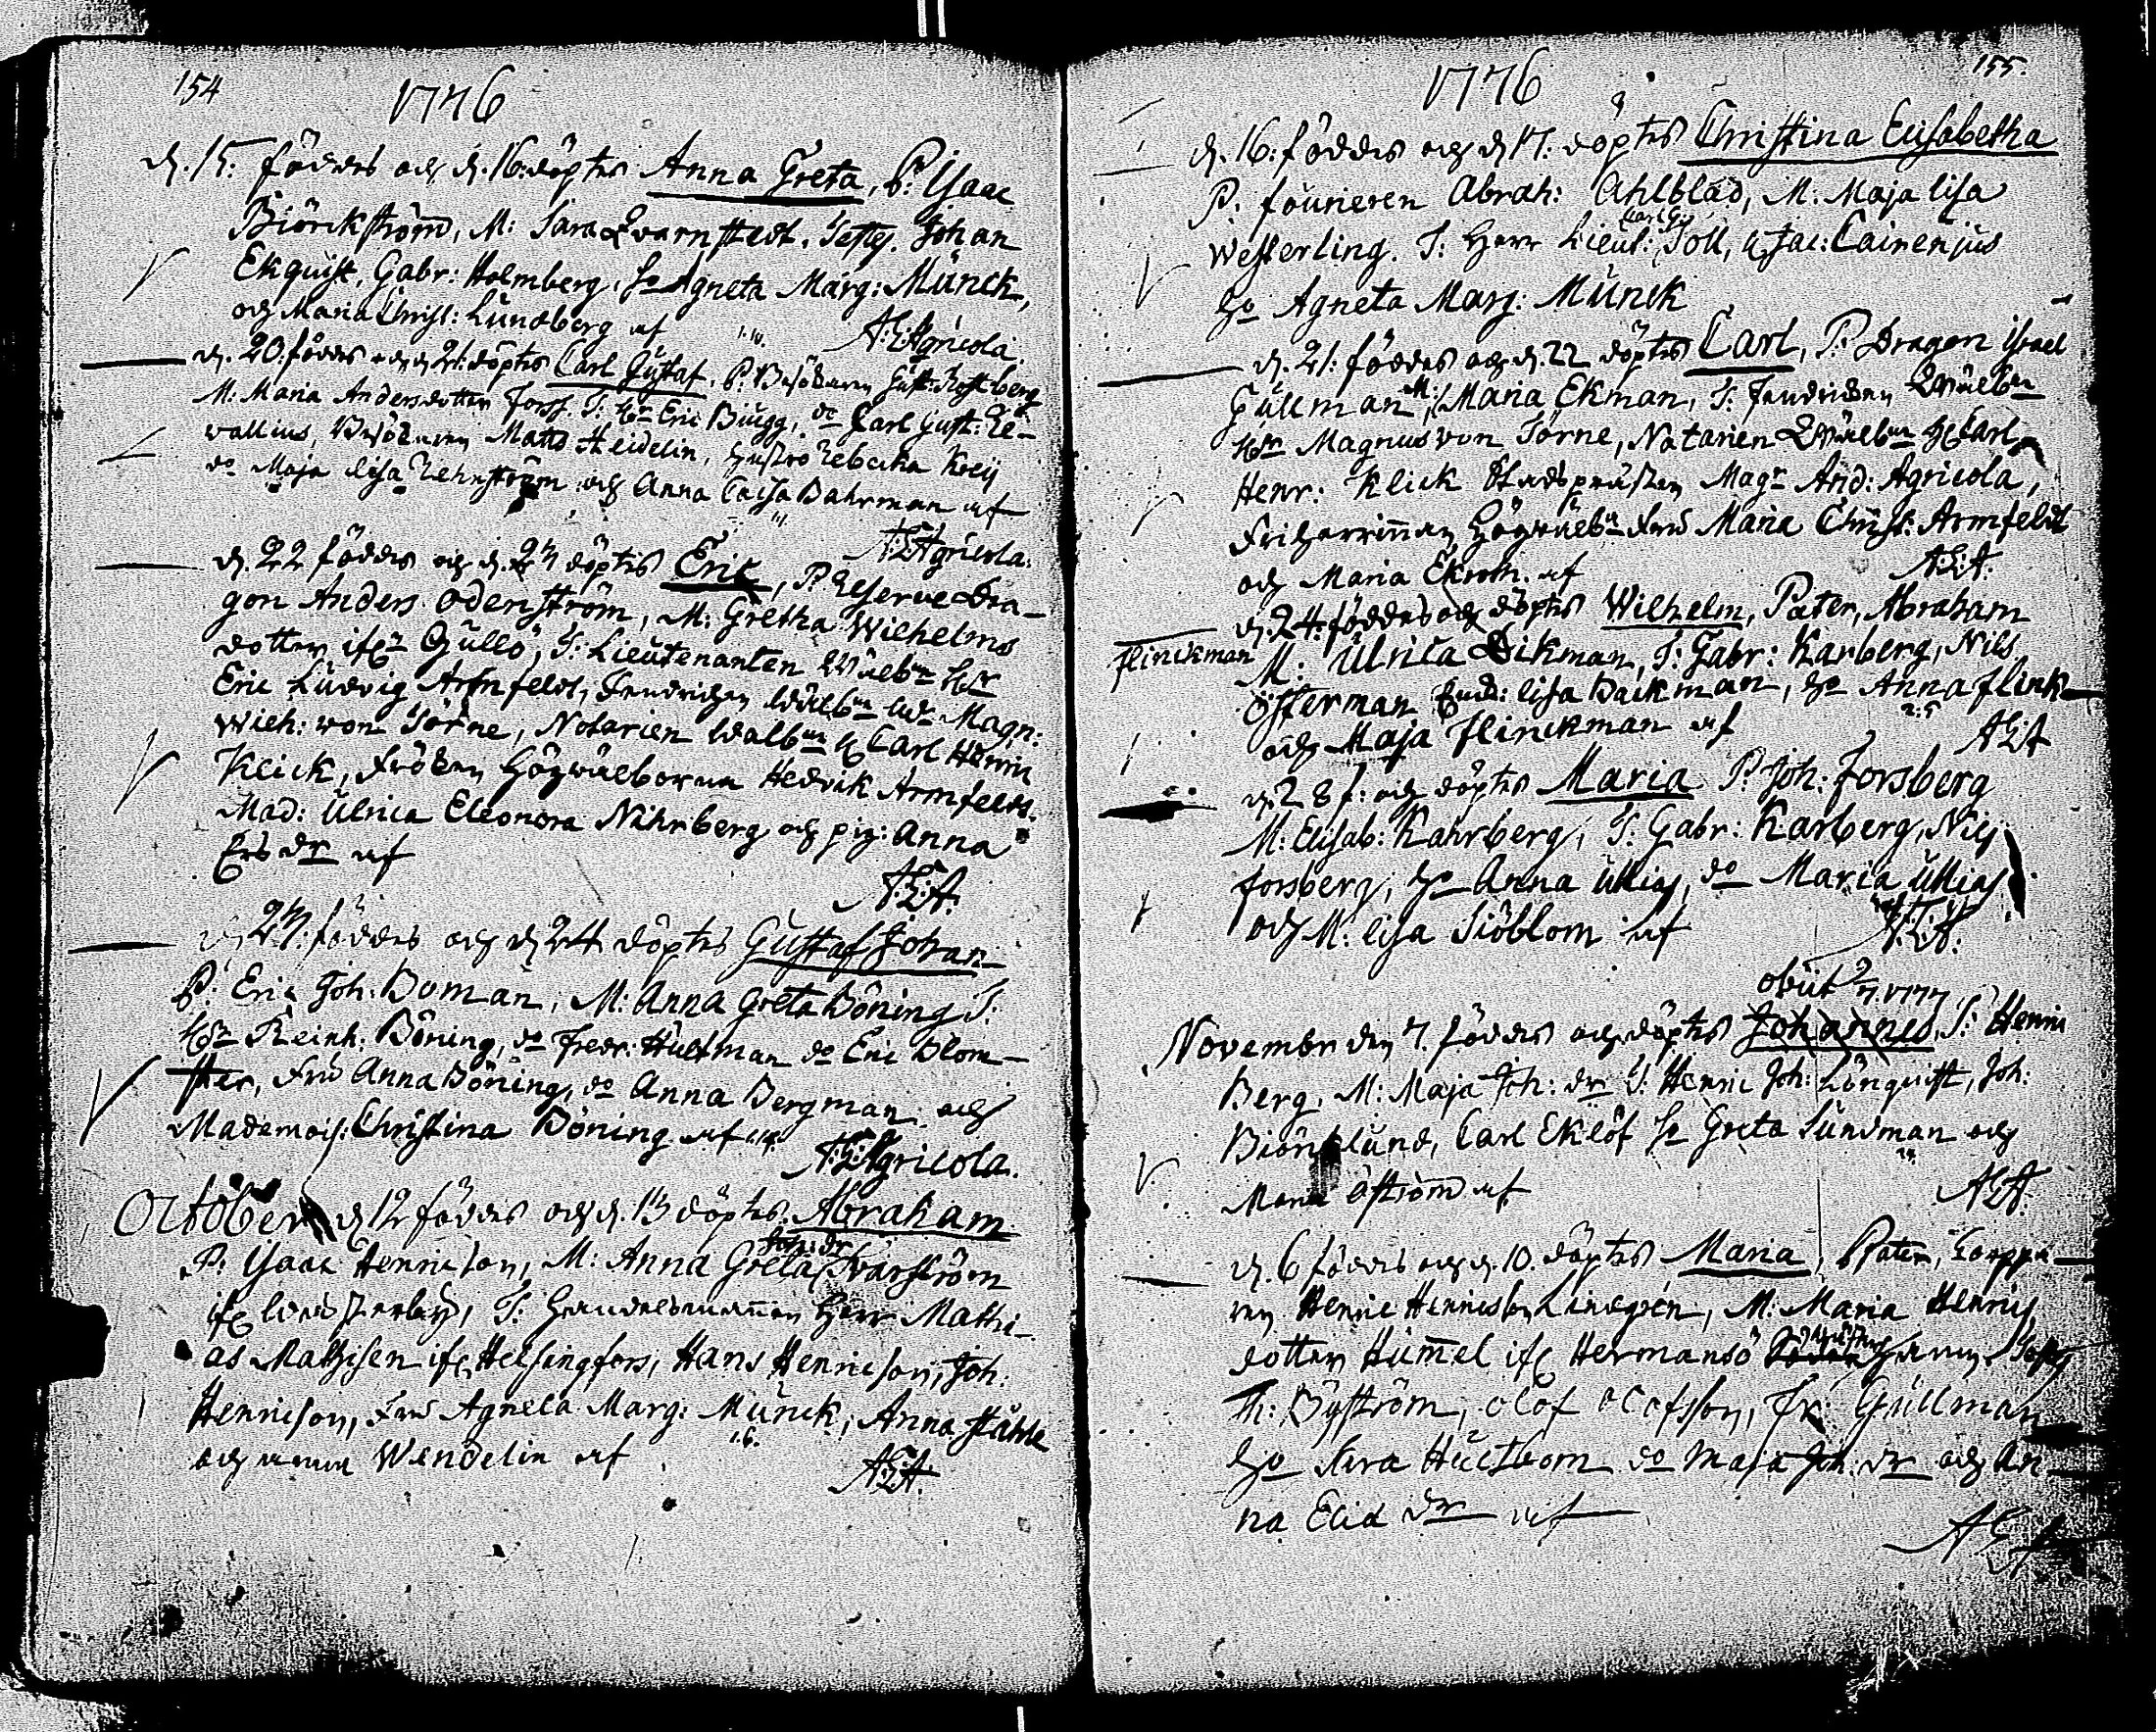 154
1776
d. 15. föddes och d. 16. döptes Anna Greta, P: Isaac
Biörckström, M: Sara Qvarnstedt. Testes. Johan
Ekquist, Gabr: Holmberg, H:o Agneta Marg: Münck,
och Maria Christ: Lundberg af
A:E:Agricola.
d. 20. föddes och d. 21. döptes Carl Gustaf, P. Besökaren Gust:
M: Maria Andersdotter Forss. T: H:r Eric Biugg, d:o Carl Gust:
vallius, Besökaren Matts Heidelin, Hustro Rebecka
d:o Maja Lisa och Anna Caisa Bahrman af
A:E:Agricola.
d. 22 föddes och d. 23 döptes Eric, P. Reserve Dra-
gon Anders Odenström, M: Gretha Wilhelms
dotter ifr: Gullö, T: Lieutenanten Wälb:n H:r
Eric Ludvig Armfeldt, Fendrichen Wälb:n H:r Magn:
Wilh: von Törne, Notarien Wälb:n H: Carl Henric
Klick, Fröken Högvälborna Hedvik Armfeldt.
Mad: Ulrica Eleonora Nihrberg och pig: Anna
Ers dr af
A:E:A.
d. 23. föddes och d 24 döptes Gustaf Johan
P: Eric Joh: Boman, M: Anna Greta Böning T:
H:r Reinh: Böning, d:o Fredr: Hultman d:o Eric Blom-
ster, Fru Anna Böning, d:o Anna Bergman och
Mademois: Christina Böning af
A:E:Agricola.
October d 12 föddes och d. 13 döptes Abraham
P: Isaac Henricson, M: Anna Greta Svarström
ifr T: Handelsmannen Herr Mathi-
as Mathisen ifr Helsingfors, Hans Henricson, Joh:
Henricson, Fru Agneta Marg: Münck, Anna Ståhle
och Wendelin af
A:E:A.
155.
1776
d. 16. föddes och d 17. döptes Christina Elisabetha
P. foureren Abrah: Ahlblad, M: Maja Lisa
Westerling. T: Herr Lieut: Carl G: Toll, H: Jac: Cairenius
H:o Agneta Marg: Münck
d. 21. föddes och d. 22 döptes Carl, P: Dragon Israel
Gullman, M: Maria Ekman, T: Fendricken Wälb:n
H:r Magnus von Törne, Notarien Wälb:n H: Carl
Henr: Klick Magr And: Agricola,
Friherrinnan Högwälb:n Fru Maria Christ: Armfeldt
och Maria Ekrom. af
A:E:A.
d. 24. föddes och döptes Wilhelm, Pater, Abraham
Flinckman M: Ulrica Dikman, T: Gabr: Karberg, Nils
Österman Lisa Backman, H:o Anna Flink-
och Maja Flinckman af
A:E:A
d. 28 f: och döptes Maria P: Joh: Forsberg
M: Elisab: Kahrberg, T: Gabr: Karberg, Nils
Forsberg, H:o Anna d:o Maria
och M: Lisa Siöblom af
A:E:A.
obiit 1777
November den 7. föddes och döptes Johannes, P: Henric
Berg, M: Maja Joh: dr T: Henric Joh: Lönquist, Joh:
Biörklund, Carl Eklöf H: Greta Sundman och
Maria Öström af
A:E:A.
d. 6 föddes och d. 10. döptes Maria, Pater,
Henric Henricson Lindgren, M: Maria Henrics
dotter Hummel ifr Hermansö
Th: Byström, Olof Olofsson, Fr: Gullman
H:o Sara Hultbom d:o Maja Joh: dr och An
na Elia dr af
A E A